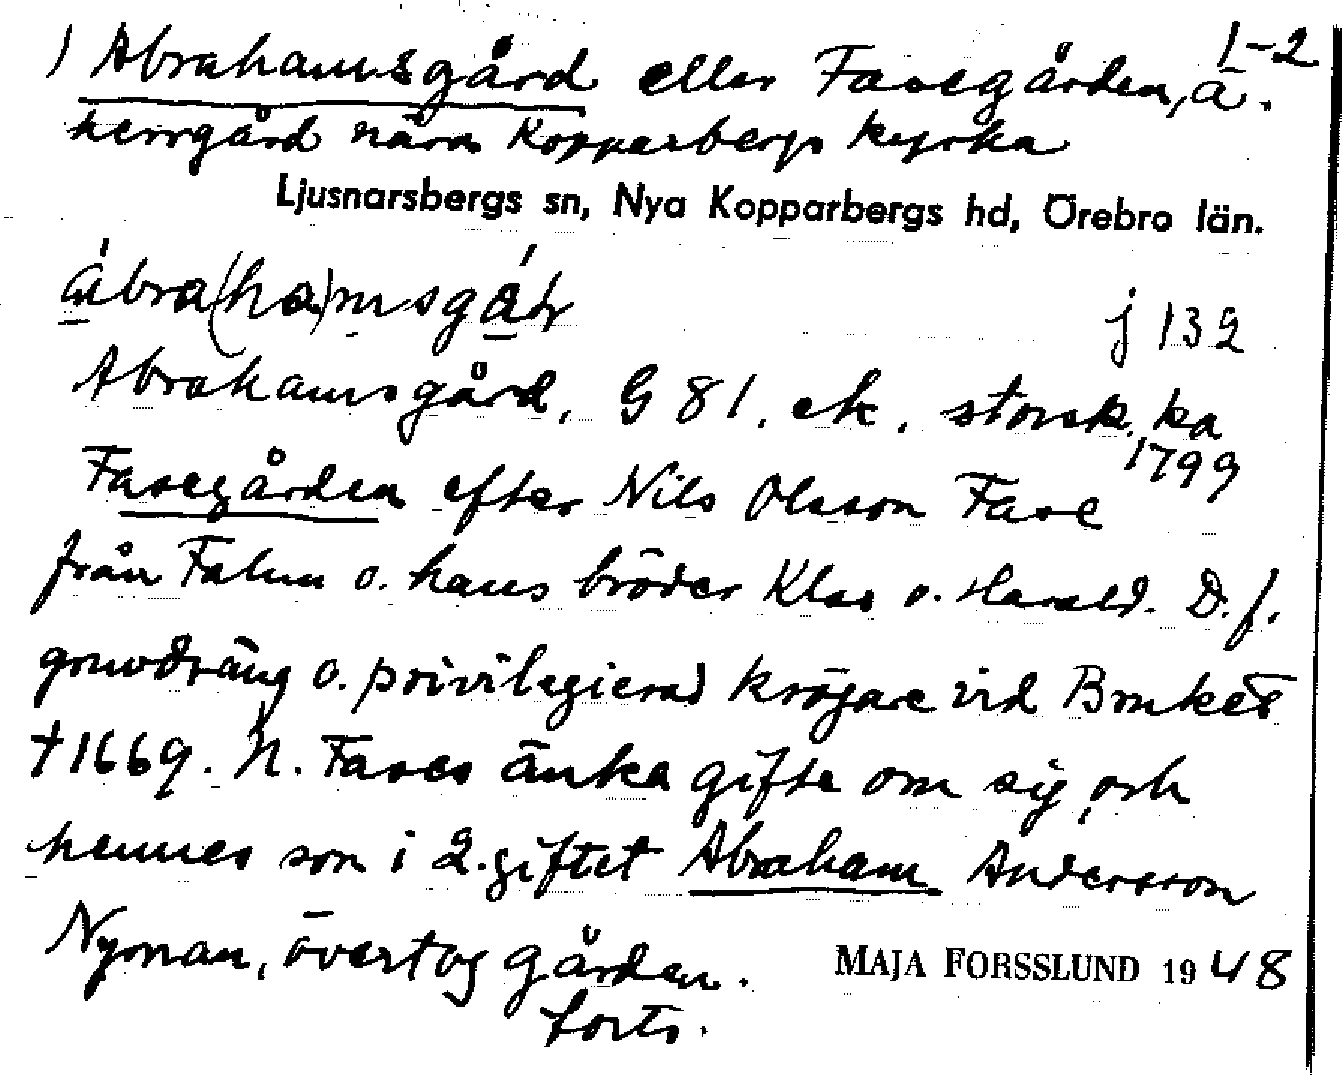 1-2
1) Abrahamsgård eller Fasegården, ä.
herrgård nära Kopparbergs kyrka
Ljusnarsbergs sn, Nya Kopparbergs hd, Örebro län.
ábra(ha)msgá̊r
j 132
Abrahamsgård, G 81. ek. storsk. ka 1799
Fasegården efter Nils Olsson Fase
från Falun o. hans bröder Klas o. Harald. D. f.
gruvdräng o. privilegierad krögare vid Bruket
†1669. N. Fases änka gifte om sig, och
hennes son i 2. giftet Abraham Andersson
Nyman, övertog gården.
MAJA FORSSLUND 1948
forts.